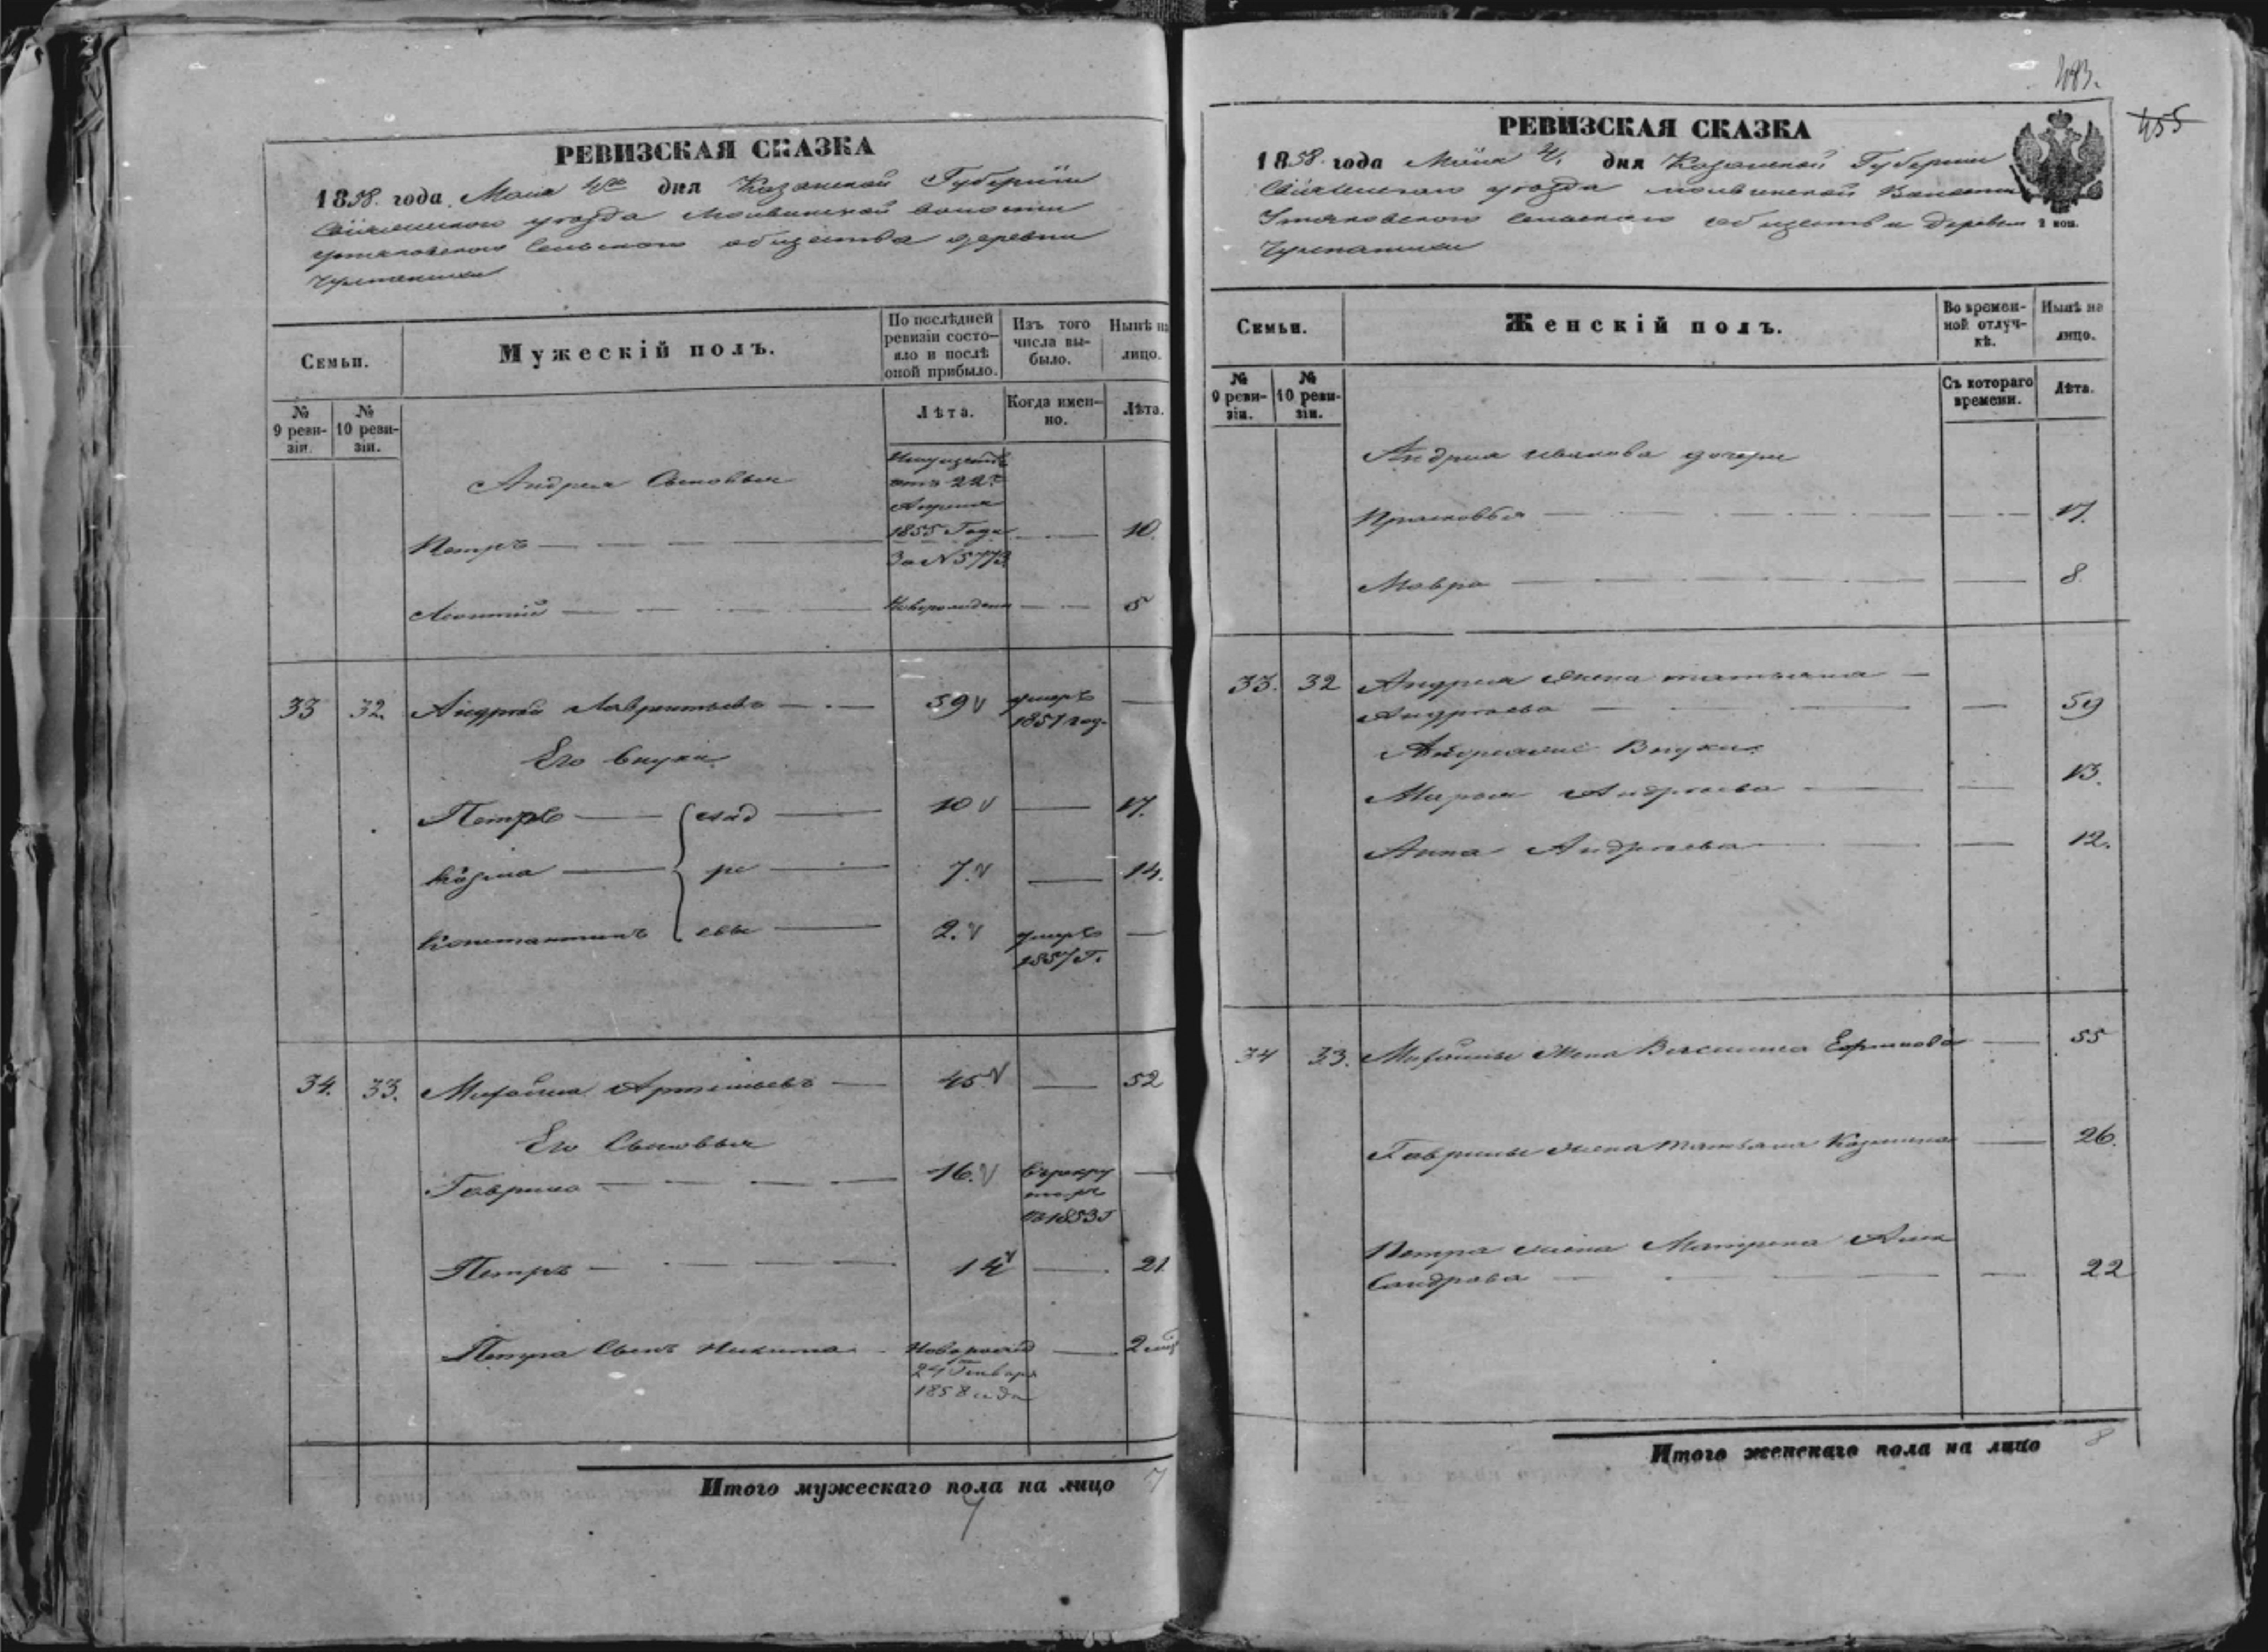 РЕВИЗСКАЯ СКАЗКА
1858 года Мая 4го дня Казанской Губернии
Свіяжскаго уѣзда волости
Сельскаго общества деревни
СЕМЬИ.
Мужескій полъ.
По послѣдней ревизіи состо-
яло и послѣ оной прибыло.
Изъ того числа вы-
было.
Нынѣ на лицо.
№ 9 реви-
зіи.
№ 10 реви-
зіи.
Лѣта.
Когда имен-
но.
Лѣта.
отъ 22го
Андрея Сыновья
Апреля
Петръ 1855 Года 10.
За №5773
Леонтій Новорожден 5
33 32. Андрей Лаврентьевъ 59 умеръ
1851 год.
Его внуки
Петръ анд 10 17.
Козма ре 7. 14.
Константинъ евы 2. умеръ
1857 Г.
34. 33. Михайла Артемьевъ 45 52
Его Сыновья
Гаврило 16. в рекру
1853 г
Петръ 14 21
Петра Сынъ Никита Новорожд 2 мѣс
24 Генваря
1858 года
Итого мужескаго пола на лицо 7
7
483.
455
РЕВИЗСКАЯ СКАЗКА
1858 года Маія 4. дня Казанской Губернии
Свіяжскаго уѣзда Волости
Сельскаго общества Деревни
2 коп.
СЕМЬИ.
Женскій полъ.
Во времен-
ной отлуч-
кѣ.
Нынѣ на лицо.
№ 9 реви-
зіи.
№ 10 реви-
зіи.
Съ котораго времени.
Лѣта.
Андрея Иванова дочери
Прасковья 17.
Мавра 8.
33. 32 Андрея Жена татьяна
Андреева 59
Внуки
Марья Андреева 13.
Анна Андреева 12.
34 33. Михайлы Жена 55
Гаврилы жена татьяна Козмина 26.
Петра жена Матрена Алек
сандрова 22
Итого женскаго пола на лицо 8